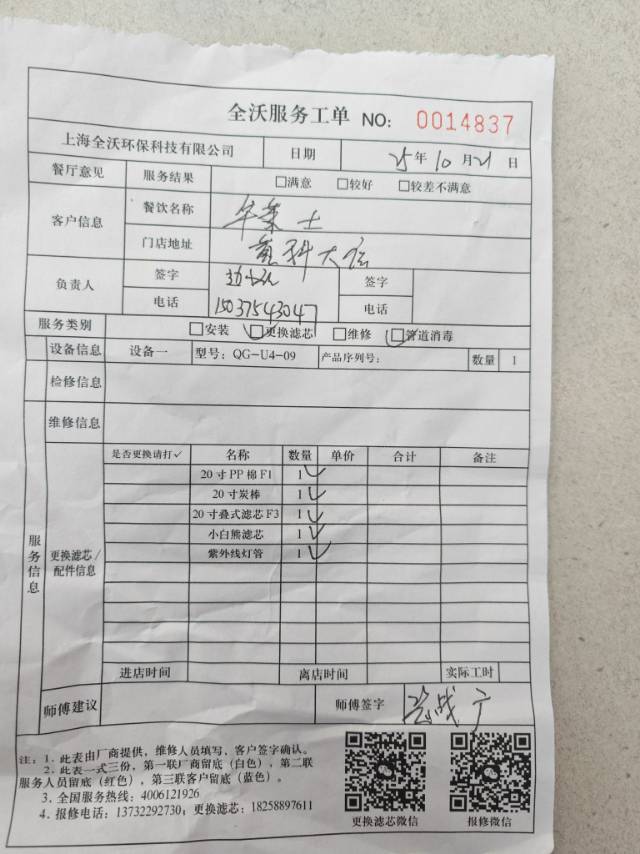 全沃服务工单 NO: 0014837
上海全沃环保科技有限公司 日期 25年10月21日
餐厅意见 服务结果 □满意 □较好 □较差不满意
客户信息 餐饮名称 士
门店地址 科大店
负责人 签字 签字
电话 15037543047 电话
服务类别 □安装 □更换滤芯 □维修 □管道消毒
设备信息 设备一 型号: QG-U4-09 产品序列号: 数量 1
检修信息
维修信息
服务信息
更换滤芯/
配件信息
是否更换请打✓ 名称 数量 单价 合计 备注
20寸PP棉F1 1 ✓
20寸炭棒 1 ✓
20寸叠式滤芯F3 1 ✓
小白熊滤芯 1 ✓
紫外线灯管 1 ✓
进店时间 离店时间 实际工时
师傅建议 师傅签字
注: 1、此表由厂商提供, 维修人员填写、客户签字确认。
2、此表一式三份, 第一联厂商留底(白色)、第二联
服务人员留底(红色)、第三联客户留底(蓝色)。
3、全国服务热线: 4006121926
4、报修电话: 13732292730; 更换滤芯: 18258897611
更换滤芯微信 报修微信